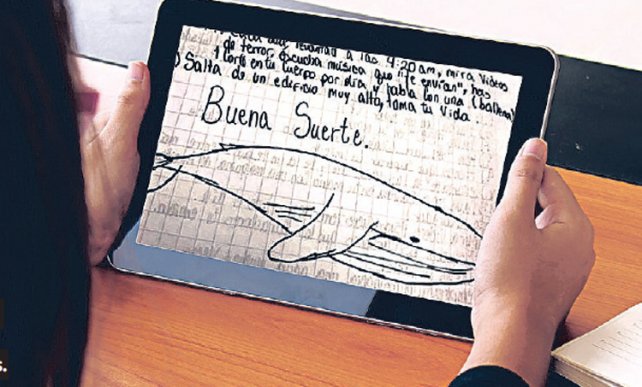 a las 4:20 am, mira videos
de terror, escucha música que "te envían", has
1 corte en tu cuerpo por día y habla con una (ballena)
) Salta de un edificio muy alto, toma tu vida.
Buena Suerte.
s.